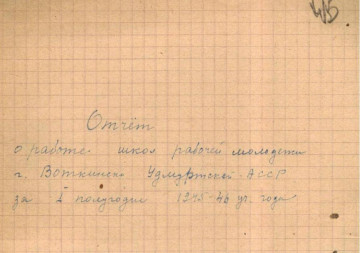 Отчёт
о работе школ рабочей молодежи
г. Воткинска Удмуртской АССР
за полугодие 1945-46 уч. года